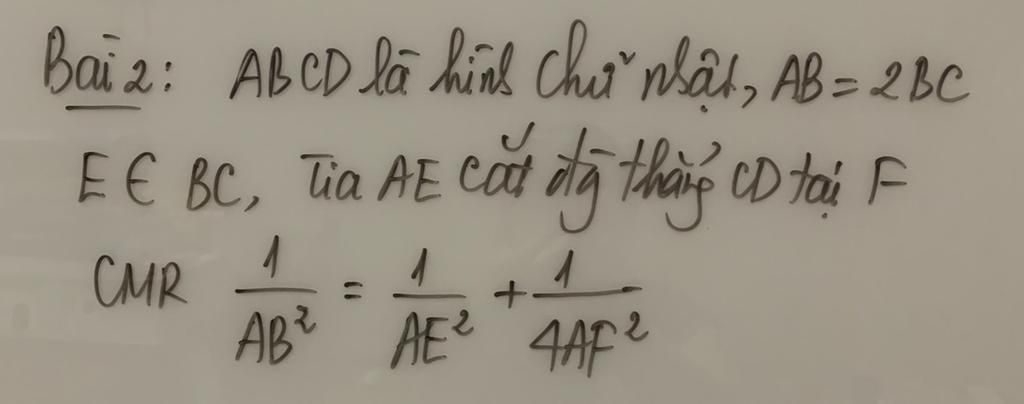 Bài 2: ABCD là hình chữ nhật, AB = 2BC
E ∈ BC, Tia AE cắt đg thẳng CD tại F
CMR 1/AB² = 1/AE² + 1/4AF²